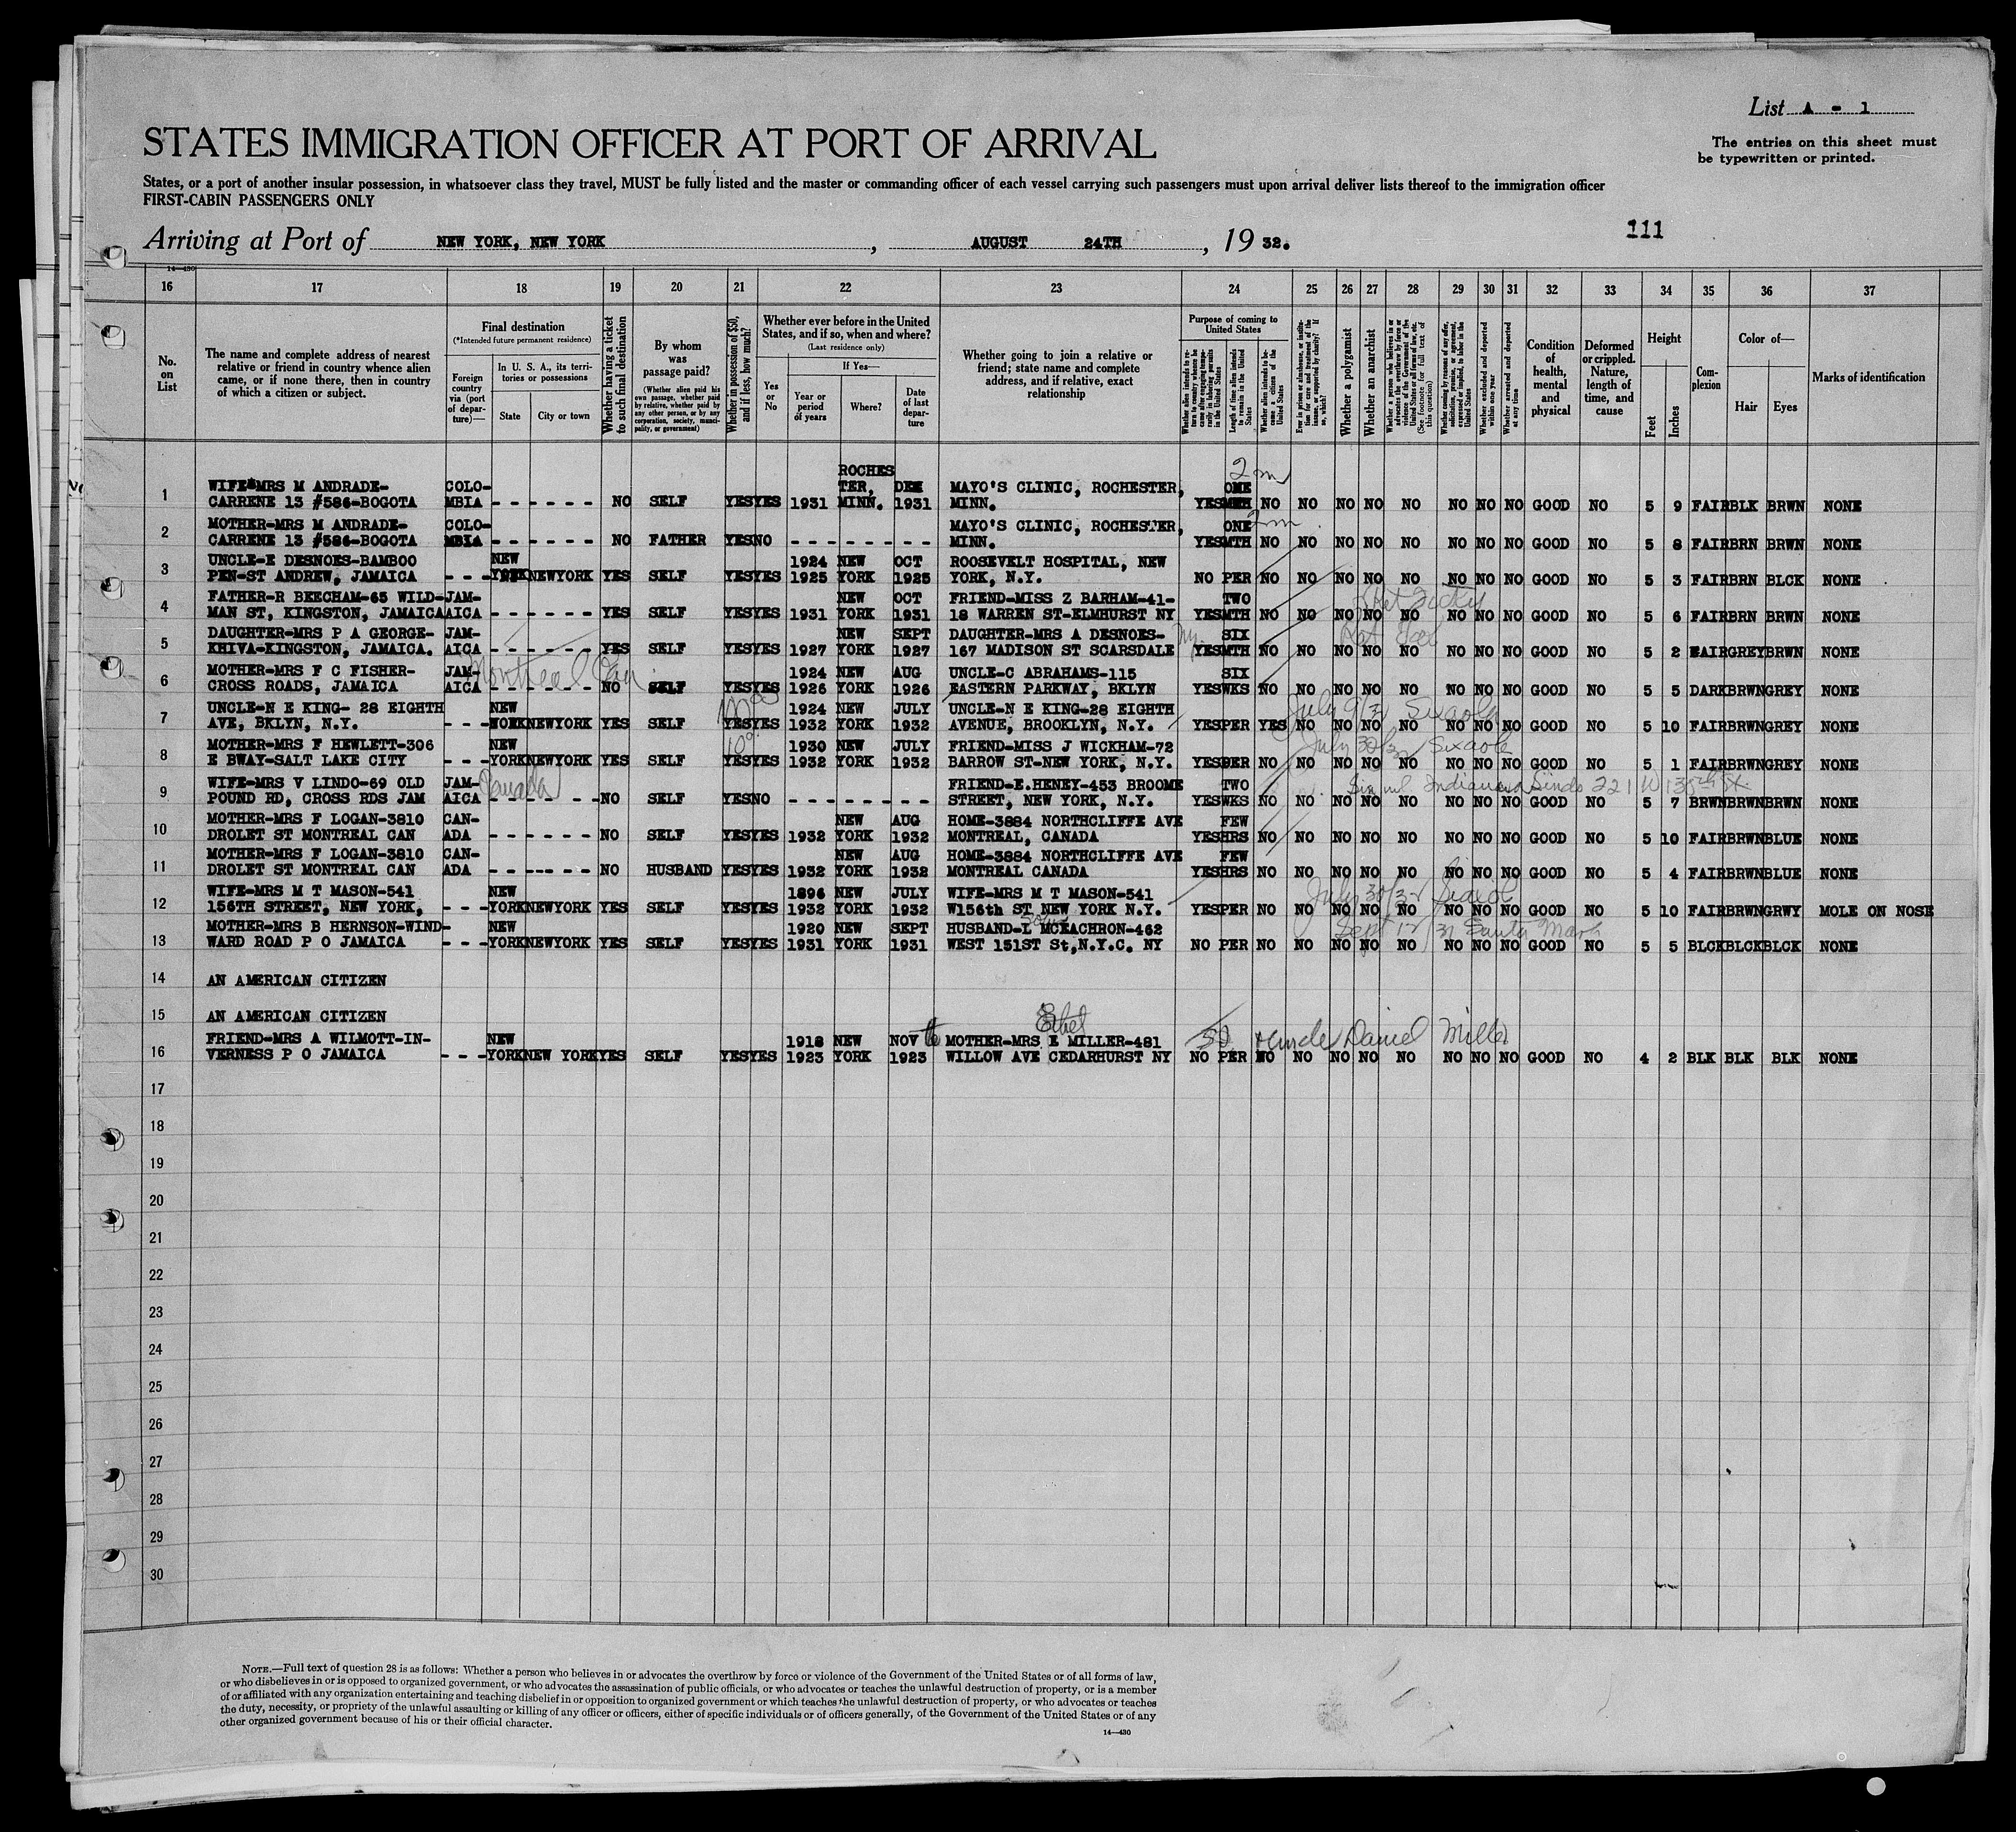 List A - 1
STATES IMMIGRATION OFFICER AT PORT OF ARRIVAL
The entries on this sheet must
be typewritten or printed.
States, or a port of another insular possession, in whatsoever class they travel, MUST be fully listed and the master or commanding officer of each vessel carrying such passengers must upon arrival deliver lists thereof to the immigration officer
FIRST-CABIN PASSENGERS ONLY
111
Arriving at Port of NEW YORK, NEW YORK, AUGUST 24TH, 19 32.
14-430
16 17 18 19 20 21 22 23 24 25 26 27 28 29 30 31 32 33 34 35 36 37
No. on List
The name and complete address of nearest relative or friend in country whence alien came, or if none there, then in country of which a citizen or subject.
Final destination
(*Intended future permanent residence)
Foreign country via (port of departure)—
In U. S. A., its territories or possessions
State
City or town
Whether having a ticket to such final destination
By whom was passage paid?
(Whether alien paid his own passage, whether paid by relative, whether paid by any other person, or by any corporation, society, municipality, or government)
Whether in possession of $50, and if less, how much?
Whether ever before in the United States, and if so, when and where?
(Last residence only)
Yes or No
If Yes—
Year or period of years
Where?
Date of last departure
Whether going to join a relative or friend; state name and complete address, and if relative, exact relationship
Purpose of coming to United States
Whether a polygamist
Whether an anarchist
(See footnote for full text of this question)
Whether excluded and deported within one year
Whether arrested and deported at any time
Condition of health, mental and physical
Deformed or crippled. Nature, length of time, and cause
Height
Feet
Inches
Complexion
Color of—
Hair
Eyes
Marks of identification
ROCHES
2 m
WIFE-MRS M ANDRADE- COLO- TER, DEC MAYO'S CLINIC, ROCHESTER, ONE
1 CARRENE 13 #586-BOGOTA MBIA - - - - - - NO SELF YES YES 1931 MINN. 1931 MINN. YES MTH NO NO NO NO NO NO NO NO GOOD NO 5 9 FAIR BLK BRWN NONE
MOTHER-MRS M ANDRADE- COLO- MAYO'S CLINIC, ROCHESTER, ONE 2m
2 CARRENE 13 #586-BOGOTA MBIA - - - - - - NO FATHER YES NO - - - - - - - - MINN. YES MTH NO NO NO NO NO NO NO NO GOOD NO 5 8 FAIR BRN BRWN NONE
UNCLE-E DESNOES-BAMBOO NEW 1924 NEW OCT ROOSEVELT HOSPITAL, NEW
3 PEN-ST ANDREW, JAMAICA - - - YORK NEWYORK YES SELF YES YES 1925 YORK 1925 YORK, N.Y. NO PER NO NO NO NO NO NO NO NO GOOD NO 5 3 FAIR BRN BLCK NONE
FATHER-R BEECHAM-65 WILD- JAM- NEW OCT FRIEND-MISS Z BARHAM-41- TWO
4 MAN ST, KINGSTON, JAMAICA AICA - - - - - - YES SELF YES YES 1931 YORK 1931 18 WARREN ST-ELMHURST NY YES MTH NO NO NO NO NO NO NO NO GOOD NO 5 6 FAIR BRN BRWN NONE
DAUGHTER-MRS P A GEORGE- JAM- NEW SEPT DAUGHTER-MRS A DESNOES- SIX
5 KHIVA-KINGSTON, JAMAICA. AICA - - - - - - YES SELF YES YES 1927 YORK 1927 167 MADISON ST SCARSDALE YES MTH NO NO NO NO NO NO NO NO GOOD NO 5 2 FAIR GREY BRWN NONE
Montreal Can
MOTHER-MRS F C FISHER- JAM- 1924 NEW AUG UNCLE-C ABRAHAMS-115 SIX
6 CROSS ROADS, JAMAICA AICA - - - - - - NO SELF YES YES 1926 YORK 1926 EASTERN PARKWAY, BKLYN YES WKS NO NO NO NO NO NO NO NO GOOD NO 5 5 DARK BRWN GREY NONE
UNCLE-N E KING- 28 EIGHTH NEW 1924 NEW JULY UNCLE-N E KING-28 EIGHTH July 9/32 Sixaola
7 AVE, BKLYN, N.Y. - - - YORK NEWYORK YES SELF YES YES 1932 YORK 1932 AVENUE, BROOKLYN, N.Y. YES PER YES NO NO NO NO NO NO NO GOOD NO 5 10 FAIR BRWN GREY NONE
MOTHER-MRS F HEWLETT-306 NEW 1930 NEW JULY FRIEND-MISS J WICKHAM-72 July 30/32 Sixaola
8 E BWAY-SALT LAKE CITY - - - YORK NEWYORK YES SELF YES YES 1932 YORK 1932 BARROW ST-NEW YORK, N.Y. YES PER NO NO NO NO NO NO NO NO GOOD NO 5 1 FAIR BRWN GREY NONE
Canada
WIFE-MRS V LINDO-69 OLD JAM- FRIEND-E.HENEY-453 BROOME TWO Lindo 221 W 135th St.
9 POUND RD, CROSS RDS JAM AICA - - - - - - NO SELF YES NO - - - - - - - - STREET, NEW YORK, N.Y. YES WKS NO NO NO NO NO NO NO NO GOOD NO 5 7 BRWN BRWN BRWN NONE
MOTHER-MRS F LOGAN-3810 CAN- NEW AUG HOME-3884 NORTHCLIFFE AVE FEW
10 DROLET ST MONTREAL CAN ADA - - - - - - NO SELF YES YES 1932 YORK 1932 MONTREAL, CANADA YES HRS NO NO NO NO NO NO NO NO GOOD NO 5 10 FAIR BRWN BLUE NONE
MOTHER-MRS F LOGAN-3810 CAN- NEW AUG HOME-3884 NORTHCLIFFE AVE FEW
11 DROLET ST MONTREAL CAN ADA - - - - - - NO HUSBAND YES YES 1932 YORK 1932 MONTREAL CANADA YES HRS NO NO NO NO NO NO NO NO GOOD NO 5 4 FAIR BRWN BLUE NONE
WIFE-MRS M T MASON-541 NEW 1896 NEW JULY WIFE-MRS M T MASON-541 July 30/32
12 156TH STREET, NEW YORK, - - - YORK NEWYORK YES SELF YES YES 1932 YORK 1932 W156th ST NEW YORK N.Y. YES PER NO NO NO NO NO NO NO NO GOOD NO 5 10 FAIR BRWN GRWY MOLE ON NOSE
MOTHER-MRS B HERNSON-WIND- NEW 1920 NEW SEPT HUSBAND-L MCEACHRON-462 Sept 12/31 Santa Marta
13 WARD ROAD P O JAMAICA - - - YORK NEWYORK YES SELF YES YES 1931 YORK 1931 WEST 151ST St,N.Y.C. NY NO PER NO NO NO NO NO NO NO NO GOOD NO 5 5 BLCK BLCK BLCK NONE
14 AN AMERICAN CITIZEN
15 AN AMERICAN CITIZEN
Ethel
FRIEND-MRS A WILMOTT-IN- NEW 1918 NEW NOV MOTHER-MRS E MILLER-481 + Uncle Daniel Miller
16 VERNESS P O JAMAICA - - - YORK NEW YORK YES SELF YES YES 1923 YORK 1923 WILLOW AVE CEDARHURST NY NO PER NO NO NO NO NO NO NO NO GOOD NO 4 2 BLK BLK BLK NONE
17
18
19
20
21
22
23
24
25
26
27
28
29
30
NOTE.—Full text of question 28 is as follows: Whether a person who believes in or advocates the overthrow by force or violence of the Government of the United States or of all forms of law,
or who disbelieves in or is opposed to organized government, or who advocates the assassination of public officials, or who advocates or teaches the unlawful destruction of property, or is a member
of or affiliated with any organization entertaining and teaching disbelief in or opposition to organized government or which teaches the unlawful destruction of property, or who advocates or teaches
the duty, necessity, or propriety of the unlawful assaulting or killing of any officer or officers, either of specific individuals or of officers generally, of the Government of the United States or of any
other organized government because of his or their official character.
14—430